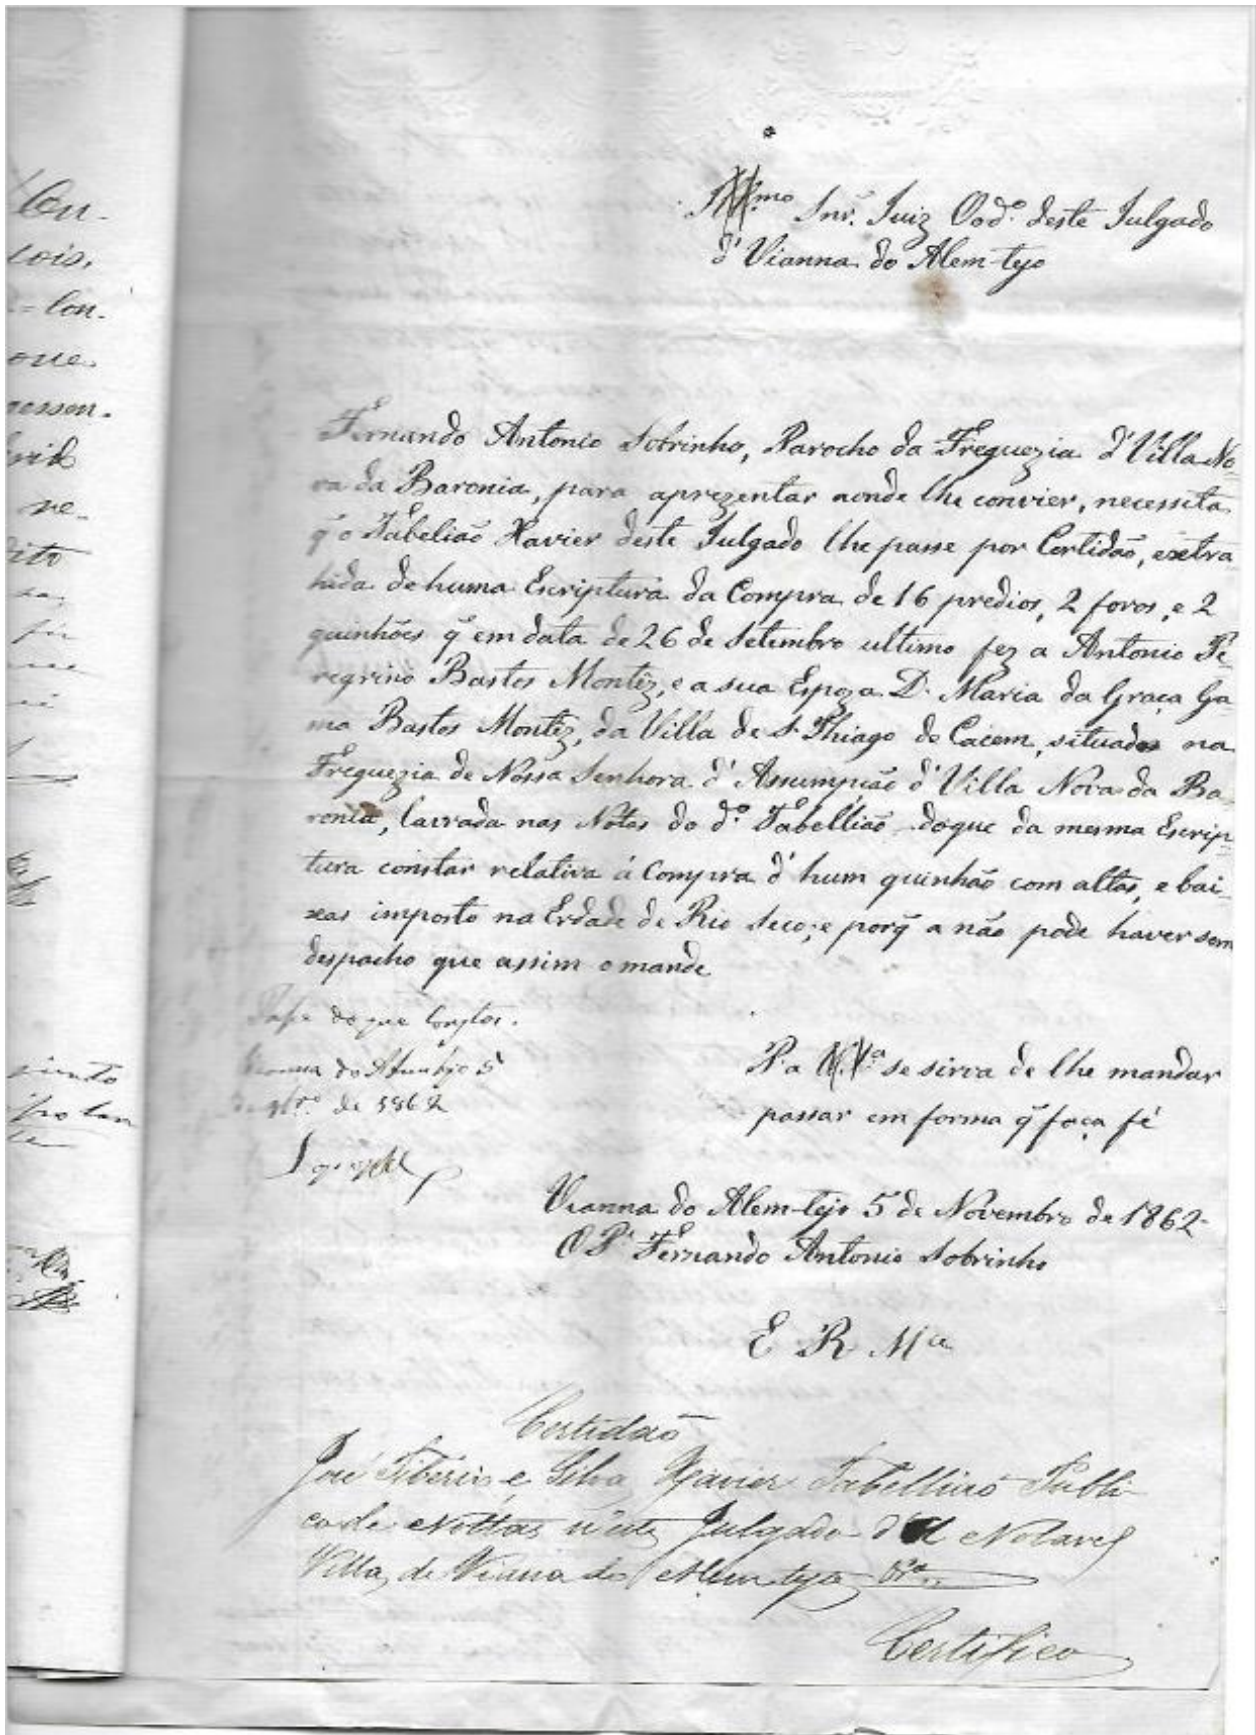 Illmo Snr. Juiz Ordo. deste Julgado
d'Vianna do Alem-tejo
Fernando Antonio Sobrinho, Parocho da Freguezia d'Villa No-
va da Baronia, para aprezentar aonde lhe convier, necessita
q̃ o Tabelião Xavier deste Julgado lhe passe por Certidão, extra
hida de huma Escriptura da Compra de 16 predios, 2 foros, e 2
quinhões q̃ em data de 26 de Setembro ultimo fez a Antonio Pe-
regrino Bastos Montêz, e a sua Espoza D. Maria da Graça Ga-
ma Bastos Montêz, da Villa de S. Thiago do Cacem, situados na
Freguezia de Nossa Senhora d'Assumpção d'Villa Nova da Ba-
ronia, lavrada nas Notas do do. Tabellião doque da mesma Escrip-
tura constar relativa á Compra d'hum quinhão com altas, e bai-
xas imposto na Erdade de Rio Seco; e porq̃ a não pode haver sem
despacho que assim o mande
Passe do que Constar.
Vianna do Alemtejo 5
de 9br.o de 1862
P. a V. Sa. se sirva de lhe mandar
passar em forma q̃ faça fé
Vianna do Alem-tejo 5 de Novembro de 1862
O Pe. Fernando Antonio Sobrinho
E R Mce
Certidão
José Tiberio e Silva Xavier Tabellião Publi-
co de Nottas n'este Julgado d Notavel
Villa de Vianna do Alemtejo
Certifico
Cou.
cois,
= Con.
oue
ne-
dito